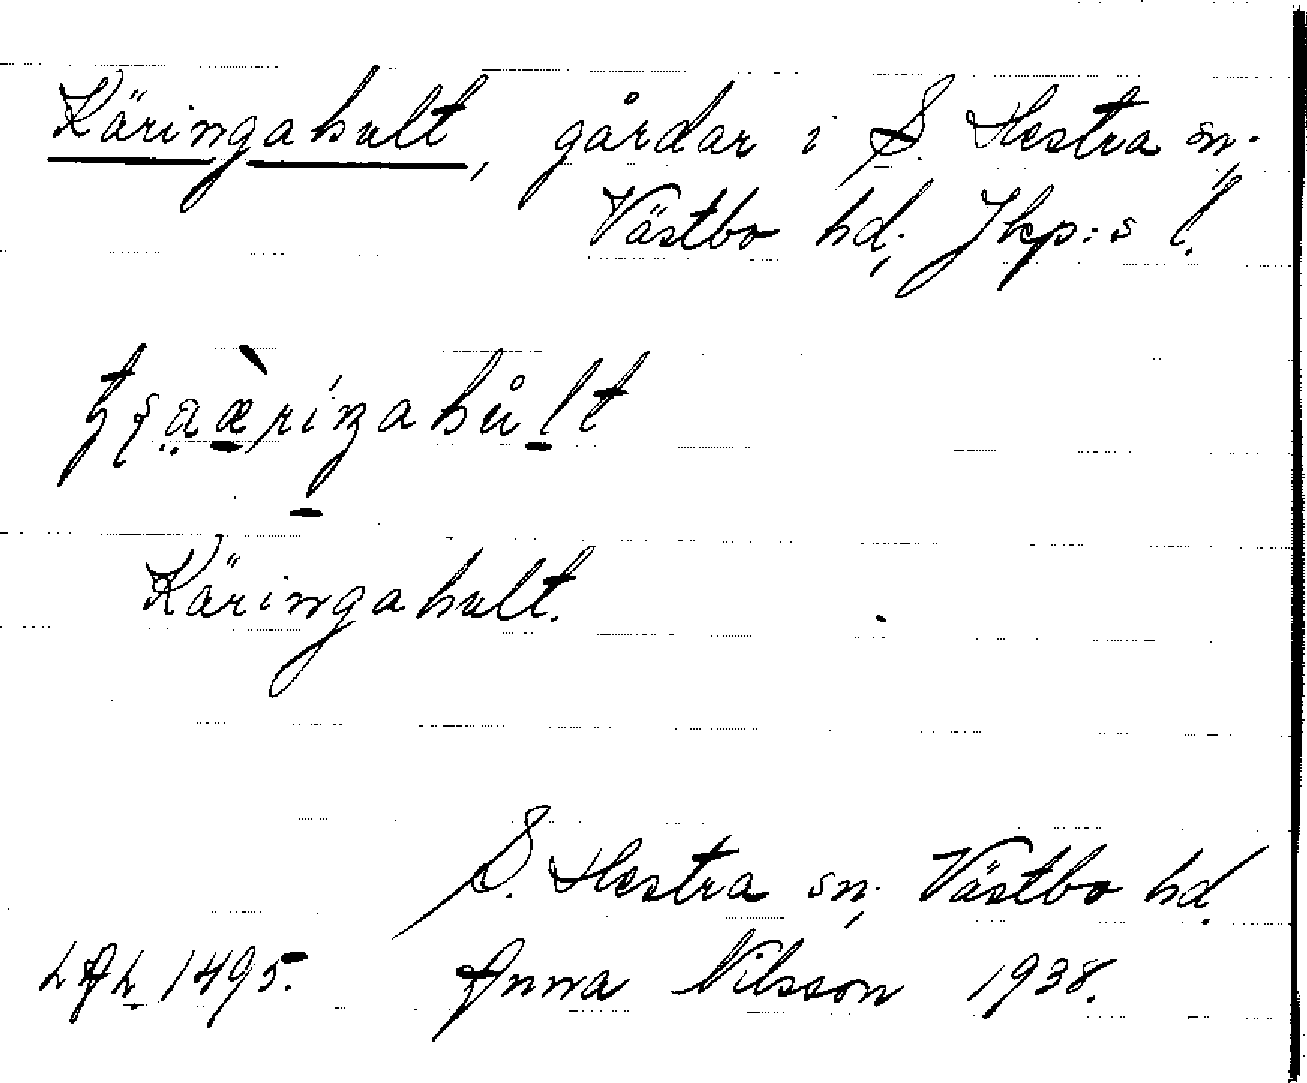 Käringahult, gårdar i S. Hestra sn.,
Västbo hd., Jkp:s l.
Käringahult.
S. Hestra sn., Västbo hd.
1495. Anna Nilsson 1938.